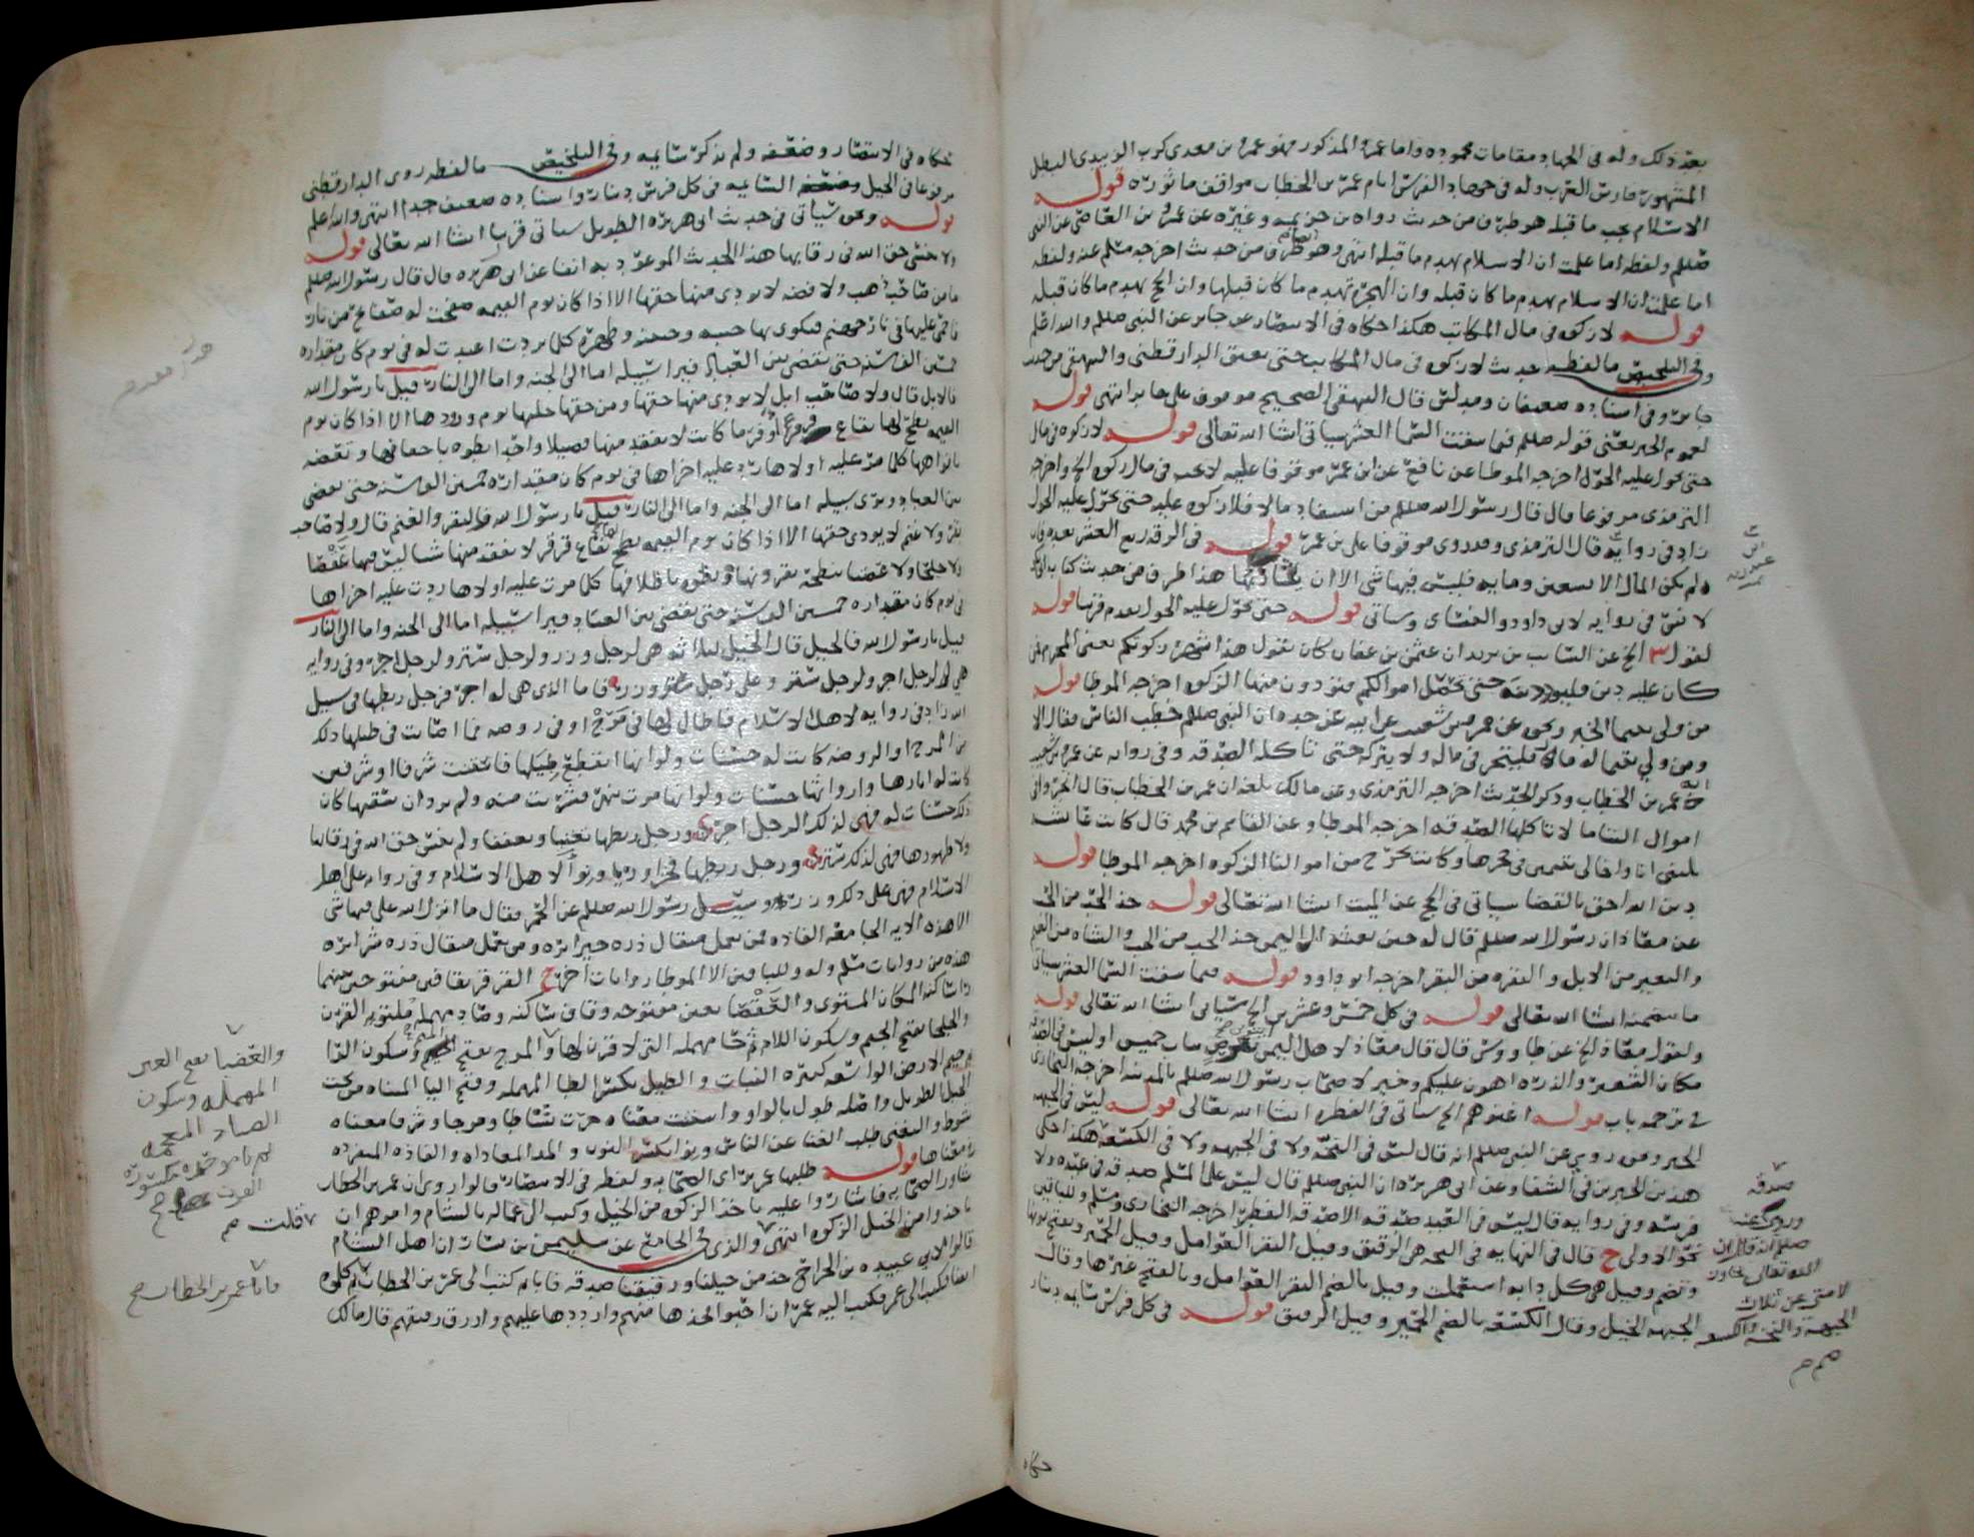 بعد ذلك وله في الجهاد مقامات محموده واما عمرو المذكور فهو عمرو بن معدي كرب الزبيدي البطل
المشهور فارس العرب وله في جهاد الفرس ايام عمر بن الخطاب مواقف ماثوره قوله
الاسلام يجب ما قبله هو طرف من حديث رواه بن خزيمه وغيره عن عمرو بن العاص عن النبي
صللم ولفظه اما علمت ان الاسلام يهدم ما قبله انتهى وهو طرف من حديث اخرجه مسلم عنه ولفظه
اما علمت ان الاسلام يهدم ما كان قبله وان الهجرة تهدم ما كان قبلها وان الحج يهدم ما كان قبله
قوله لا زكوه في مال المكاتب هكذا حكاه في الانتصار عن جابر عن النبي صللم والله اعلم
وفي التلخيص ما لفظه حديث لا زكوه في مال المكاتب حتى يعتق الدارقطني والبيهقي من حديث
جابر وفي اسناده ضعيفان ومدلس قال البيهقي الصحيح موقوف على جابر انتهى قوله
لعموم الخبر يعني قوله صللم فيما سقت السما العشر سياتي انشا الله تعالى قوله لا زكوه في مال
حتى يحول عليه الحول اخرجه الموطا عن نافع عن ابن عمر موقوفا عليه لا تجب في مال زكوه الخ واخرجه
الترمذي مرفوعا قال قال رسول الله صللم من استفاد مالا فلا زكوه عليه حتى يحول عليه الحول
زاد في روايه قال الترمذي وقد روي موقوفا على بن عمر قوله في الرقه ربع العشر بعده فان
ولم يكن المال الا تسعين ومايه فليس فيها شي الا ان يشا ربها هذا طرف من حديث كتاب ابي بكر
لا شي في روايه لابي داود والنسائي وسياتي قوله حتى يحول عليه الحول تقدم قريبا قوله
لقول الخ عن السايب بن يزيد ان عثمن بن عفان كان يقول هذا شهر زكوتكم يعني المحرم فمن
كان عليه دين فليوده حتى تحصل اموالكم فتودون منها الزكوه اخرجه الموطا قوله
من ولي يتيما الخبر ونحوه عن عمرو بن شعيب عن ابيه عن جده ان النبي صللم خطب الناس فقال الا
ومن ولي يتيما له مال فليتجر في ماله ولا يتركه حتى تاكله الصدقه وفي روايه عن عمرو بن شعيب
ان عمر بن الخطاب وذكر الحديث اخرجه الترمذي وعن مالك بلغه ان عمر بن الخطاب قال اتجروا في
اموال اليتاما لا تاكلها الصدقه اخرجه الموطا وعن القاسم بن محمد قال كانت عائشه
تليني انا واخا لي يتيمين في حجرها وكانت تخرج من اموالنا الزكوه اخرجه الموطا قوله
دين الله احق بالقضا سياتي في الحج عن الميت انشا الله تعالى قوله خذ الحب من الحب
عن معاذ ان رسول الله صللم قال له حين بعثه الى اليمن خذ الحب من الحب والشاه من الغنم
والبعير من الابل والبقره من البقر اخرجه ابو داود قوله فيما سقت السما العشر سياتي
ما يتضمنه انشا الله تعالى قوله في كل خمس وعشرين الخ سياتي انشا الله تعالى قوله
ولقول معاذ الخ عن طاووس قال قال معاذ لاهل اليمن ايتوني بعرض ثياب خميس او لبيس في الصدقه
مكان الشعير والذره اهون عليكم وخير لاصحاب رسول الله صللم بالمدينه اخرجه البخاري
في ترجمه باب قوله اغنوهم الخ سياتي في الفطره انشا الله تعالى قوله ليس في الجبهه
الخبر ومن روي عن النبي صللم انه قال ليس في النخه ولا في الجبهه ولا في الكسعه هكذا حكى
هذين الخبرين في الشفا وعن ابي هريره ان النبي صللم قال ليس على المسلم صدقه في عبده ولا
فرسه وفي روايه قال ليس في العبد صدقه الا صدقه الفطر اخرجه البخاري ومسلم وللباقين
نحو الاولى ح قال في النهايه في النخه هي الرقيق وقيل البقر العوامل وقيل الحمير وتفتح نونها
وتضم وقيل هي كل دابه استعملت وقيل بالضم البقر العوامل وبالفتح غيرها وقال
الجبهه الخيل وقال الكسعه بالضم الحمير وقيل الرقيق قوله في كل فرس سائمه دينار
صدقه
وروي عنه
صللم انه قال ان
الله تعالى تجاوز
لامتي عن ثلاث
الجبهه والنخه والكسعه
حكاه
حكاه في الانتصار وضعفه ولم يذكر سائمه وفي التلخيص ما لفظه روى الدارقطني
مرفوعا في الخيل السائمه في كل فرس دينار واسناده ضعيف جدا انتهى والله اعلم
قوله ونحوه سياتي في حديث ابي هريره الطويل سياتي قريبا انشا الله تعالى قوله
ولا ينسى حق الله في رقابها هذا الحديث الموعود به انفا عن ابي هريره قال قال رسول الله صللم
ما من صاحب ذهب ولا فضه لا يودي منها حقها الا اذا كان يوم القيمه صفحت له صفائح من نار
فاحمي عليها في نار جهنم فيكوى بها جنبه وجبينه وظهره كلما بردت اعيدت له في يوم كان مقداره
خمسين الف سنه حتى يقضى بين العباد فيرا سبيله اما الى الجنه واما الى النار قيل يا رسول الله
فالابل قال ولا صاحب ابل لا يودي منها حقها ومن حقها حلبها يوم وردها الا اذا كان يوم
القيمه بطح لها بقاع قرقر اوفر ما كانت لا يفقد منها فصيلا واحدا تطوه باخفافها وتعضه
بافواهها كلما مر عليه اولاها رد عليه اخراها في يوم كان مقداره خمسين الف سنه حتى يقضى
بين العباد ويرى سبيله اما الى الجنه واما الى النار قيل يا رسول الله فالبقر والغنم قال ولا صاحب
بقر ولا غنم لا يودي حقها الا اذا كان يوم القيمه بطح لها بقاع قرقر لا يفقد منها شيا ليس فيها عقصا
ولا جلحا ولا عضبا تنطحه بقرونها وتطوه باظلافها كلما مرت عليه اولاها ردت عليه اخراها
في يوم كان مقداره خمسين الف سنه حتى يقضى بين العباد فيرا سبيله اما الى الجنه واما الى النار
قيل يا رسول الله فالخيل قال الخيل ثلاثه هي لرجل وزر ولرجل ستر ولرجل اجر وفي روايه
هي لرجل اجر ولرجل ستر وعلى رجل وزر فاما الذي هي له اجر فرجل ربطها في سبيل
الله زاد في روايه لاهل الاسلام فاطال لها في مرج او في روضه فما اصابت في طيلها ذلك
من المرج او الروضه كانت له حسنات ولو انها انقطع طيلها فاستنت شرفا او شرفين
كانت له اثارها وارواثها حسنات ولو انها مرت بنهر فشربت منه ولم يرد ان يسقيها كان
ذلك حسنات له فهي لذلك الرجل اجر ورجل ربطها تغنيا وتعففا ولم ينس حق الله في رقابها
ولا ظهورها فهي لذلك ستر ورجل ربطها فخرا وريا ونوا لاهل الاسلام وفي روايه على اهل
الاسلام فهي على ذلك وزر وسيل رسول الله صللم عن الحمر فقال ما انزل الله علي فيها شي
الا هذه الايه الجامعه الفاذه فمن يعمل مثقال ذره خيرا يره ومن يعمل مثقال ذره شرا يره
هذه من روايات مسلم وله وللباقين الا الموطا روايات اخر ح القرقر بقافين مفتوحتين بينهما
را ساكنه المكان المستوي والعقصا بعين مفتوحه وقاف ساكنه وصاد مهمله ملتويه القرن
والجلحا بفتح الجيم وسكون اللام ثم حا مهمله التي لا قرن لها والمرج بفتح الميم وسكون الرا
ثم جيم الارض الواسعه كثيره النبات والطيل بكسر الطا المهمله وفتح اليا المثناه من تحت
الحبل الطويل واصله طول بالواو واستنت معناه جرت شاطا ومرجا وشرفا معناه
شوطا والتغني طلب الغنا عن الناس ونوا بكسر النون والمد المعاداه والفاذه المنفرده
في معناها قوله طلبها عمر براي الصحابه ولفظه في الانتصار قالوا روي ان عمر بن الخطاب
شاور الصحابه فاشاروا عليه باخذ الزكوه من الخيل وكتب الى عماله بالشام وامرهم ان
ياخذوا من الخيل الزكوه انتهى والذي في الجامع عن سليمن بن يسار ان اهل الشام
قالوا لابي عبيده بن الجراح خذ من خيلنا ورقيقنا صدقه فابى ثم كتب الى عمر بن الخطاب ثم كلموه
ايضا فكتب الى عمر فكتب اليه عمر ان احبوا فخذها منهم وارددها عليهم وارزق رقيقهم قال مالك
والعضبا بفتح العين
المهمله وسكون
الضاد المعجمه
ثم با موحده مكسوره
القرن
قلت
فابا عمر بن الخطاب